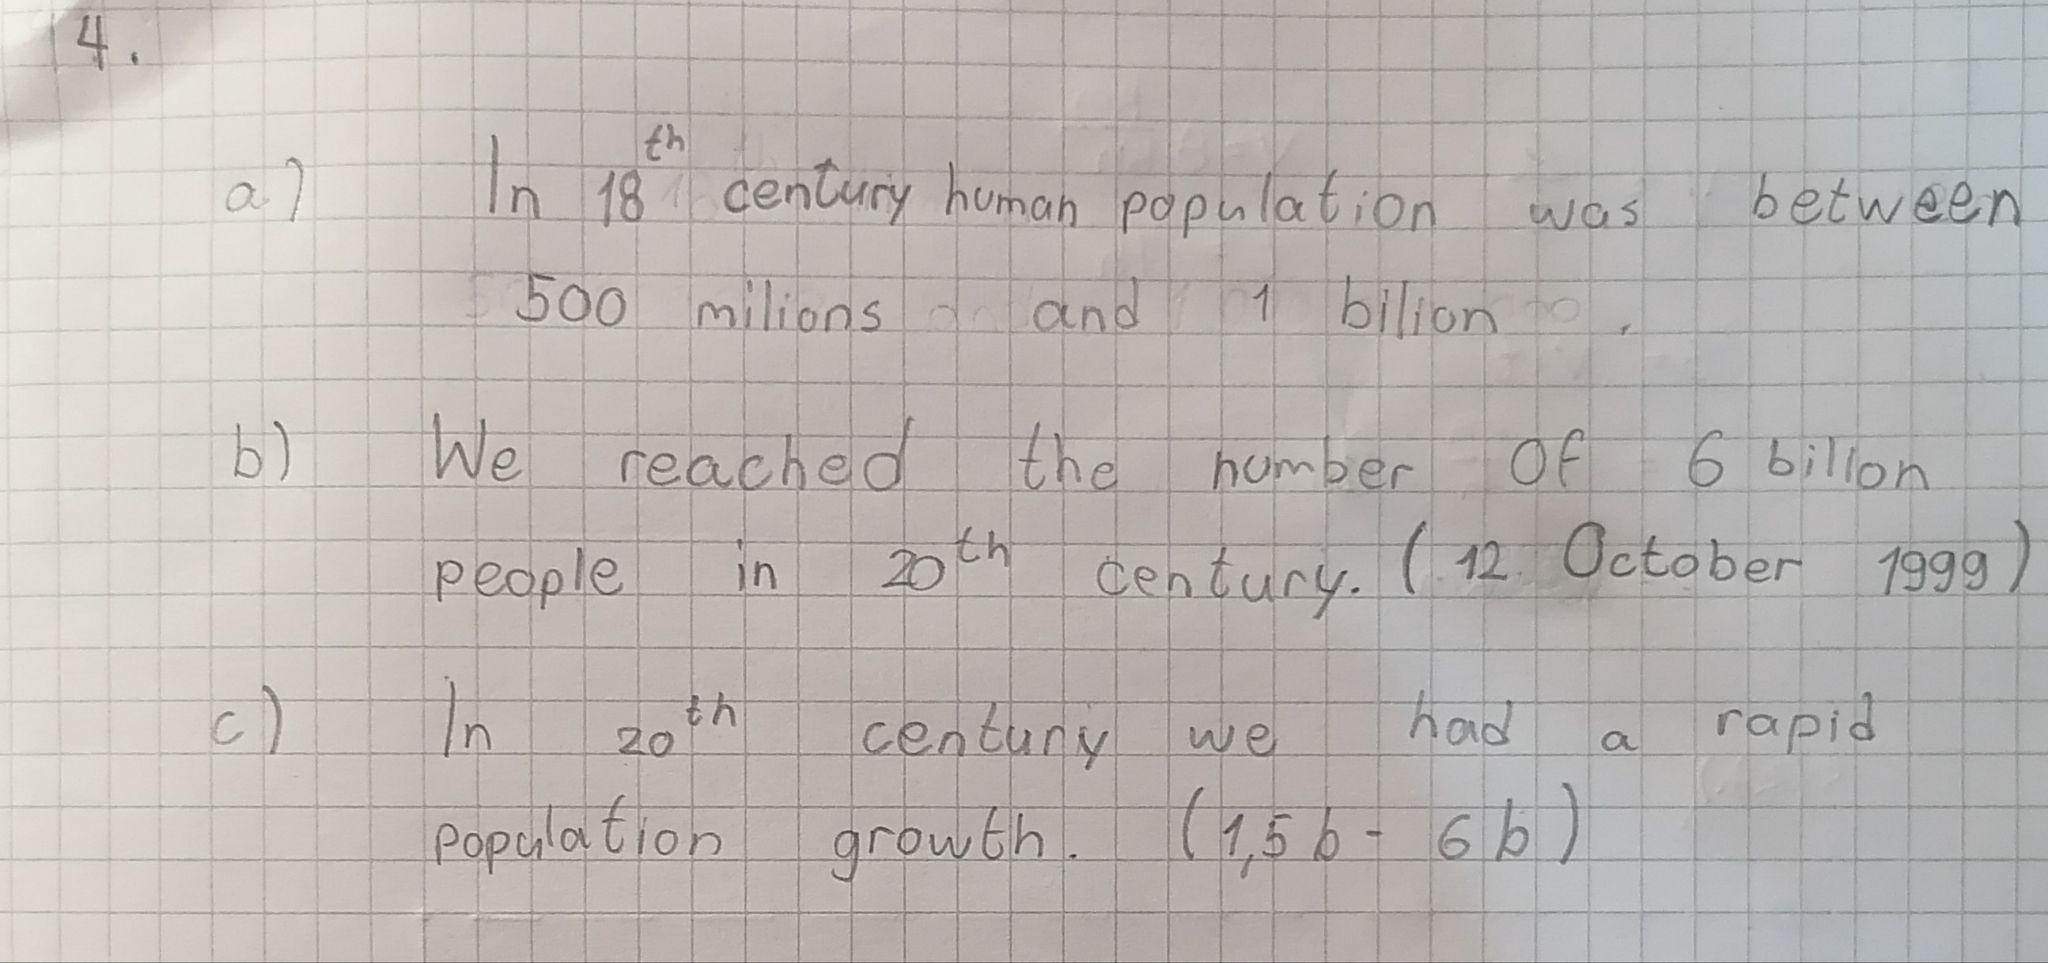 4.
a) In 18th century human population was between
500 milions and 1 bilion.
b) We reached the number of 6 billon
people in 20th century. (12. October 1999)
c) In 20th century we had a rapid
population growth. (1,5 b - 6 b)